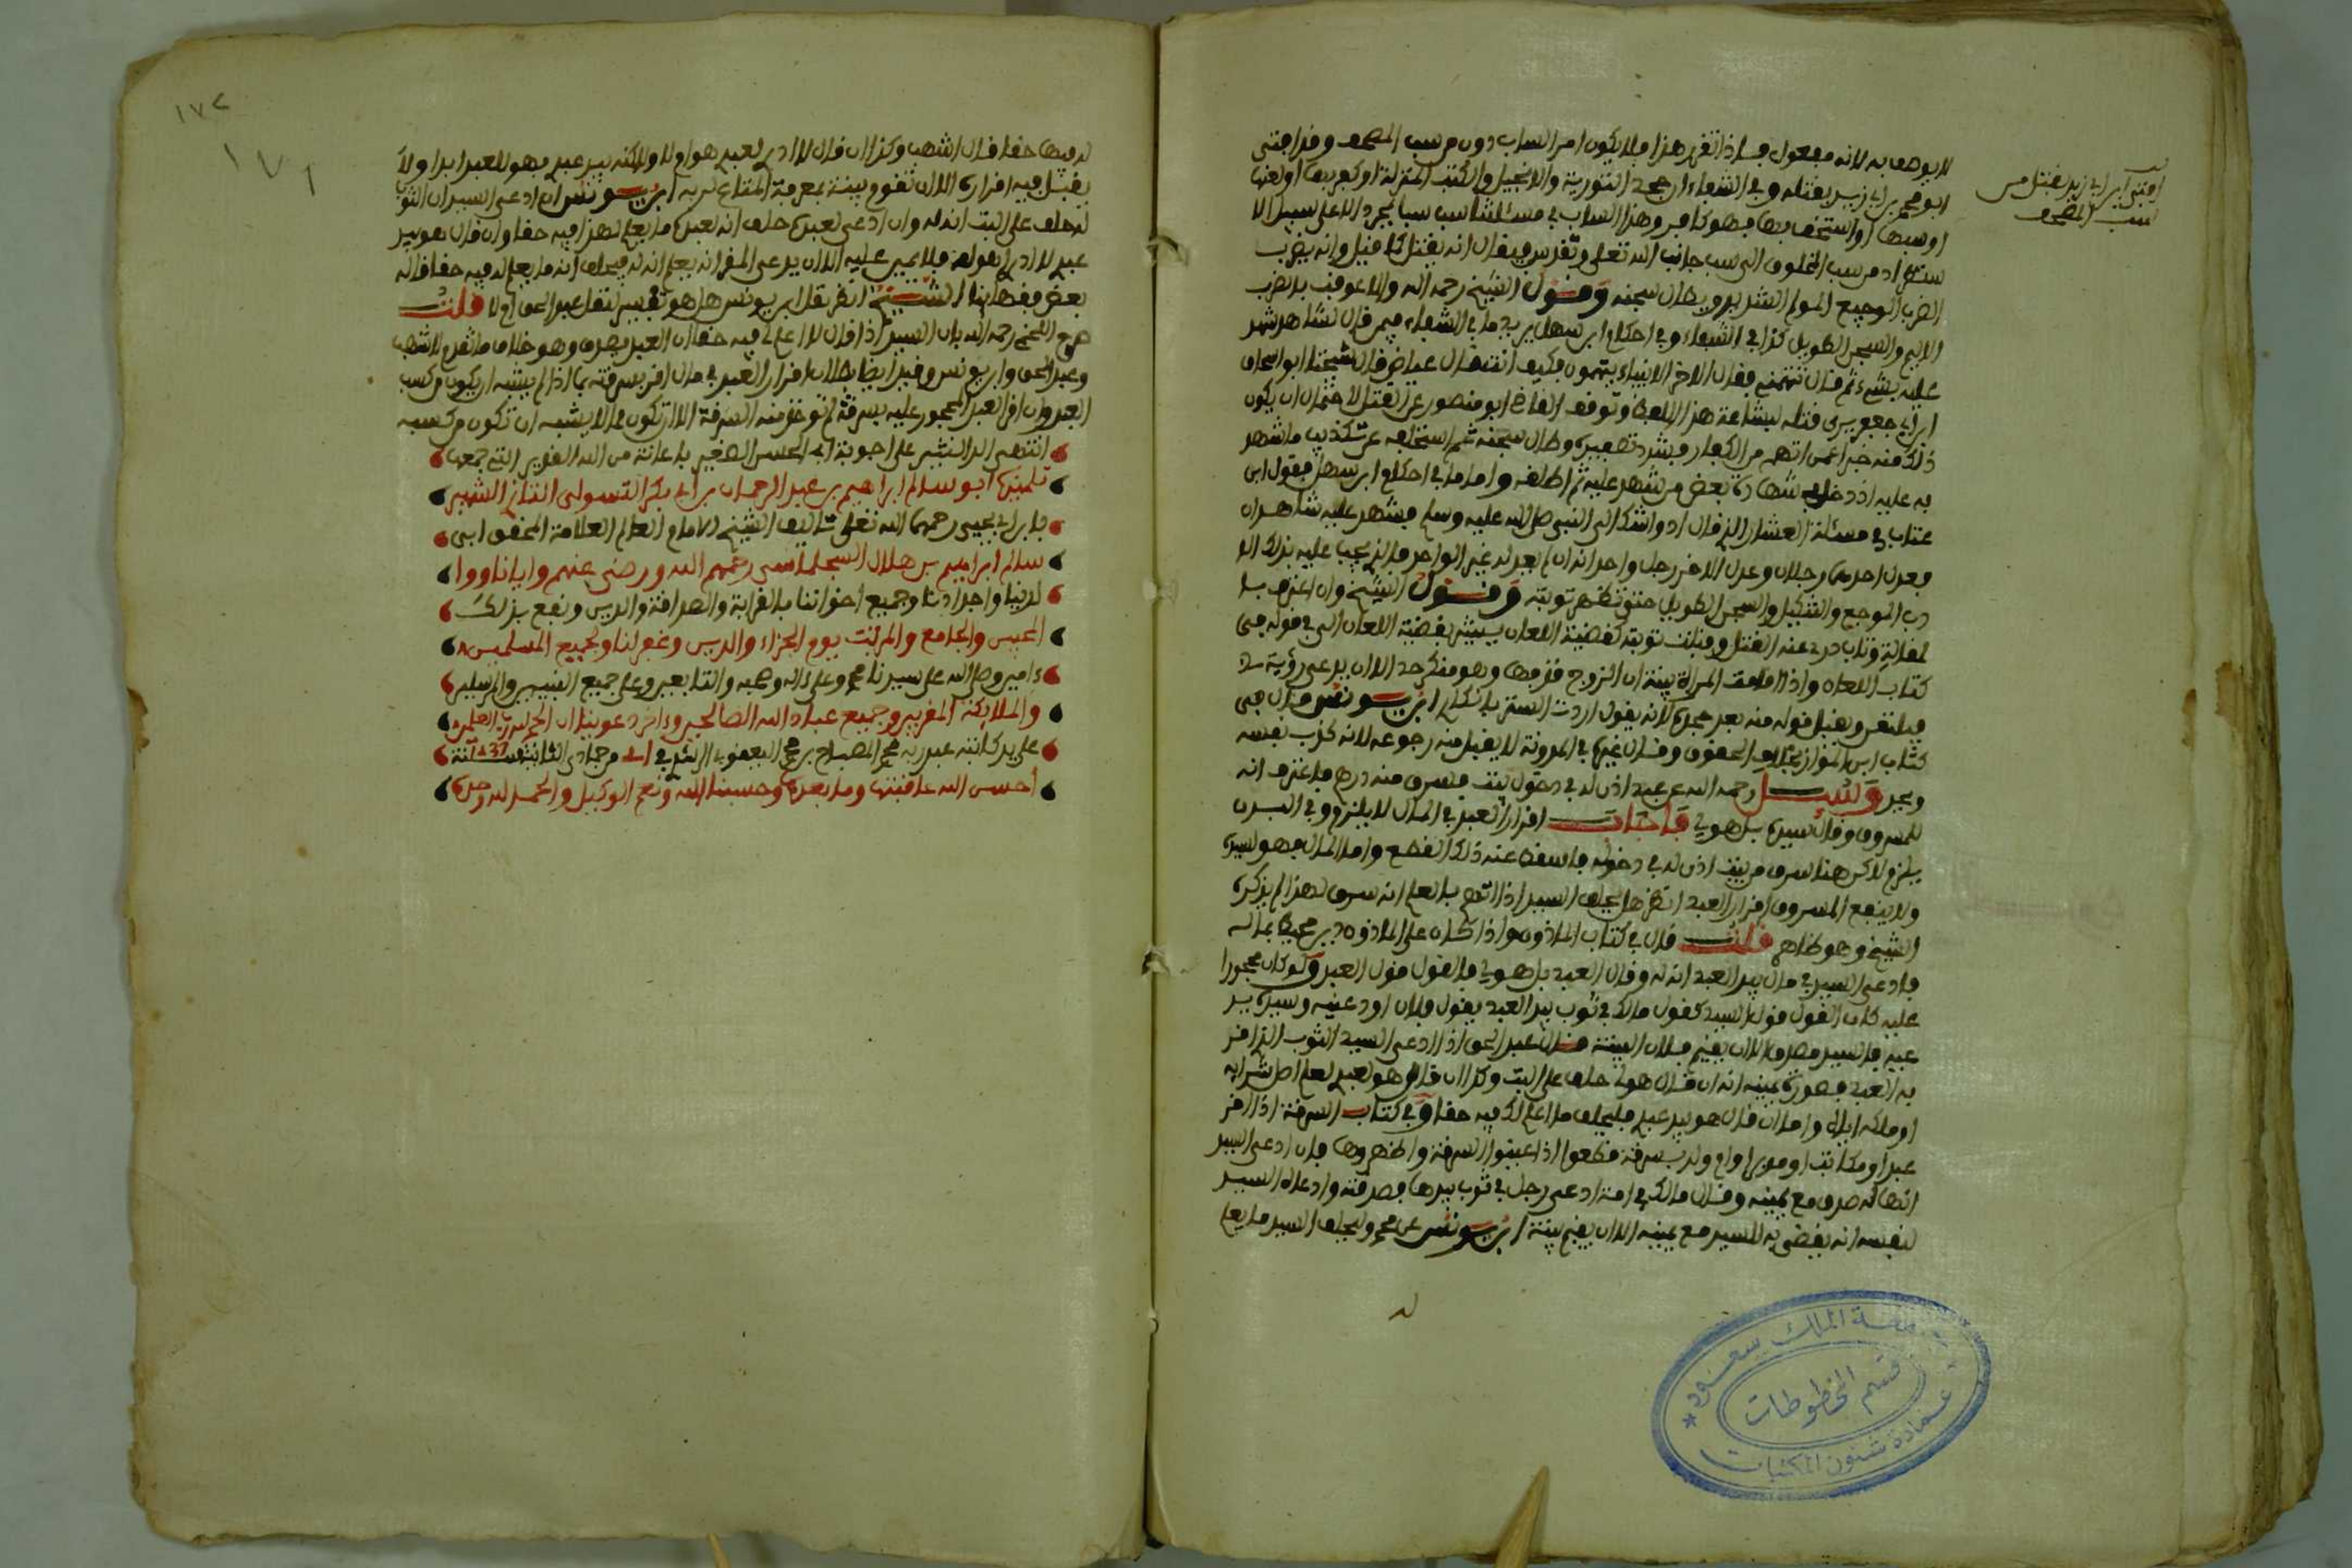 لا يوصف به لانه مفعول فاذا تقرر هذا فلا يكون امر الساب دون من سب المصحف وقد افتى
ابو محمد بن ابي زيد بقتله وفي الشفاء من جحد التورية والانجيل والكتب المنزلة او كفر بها او لعنها
او سبها او استخف بها فهو كافر وهذا الساب في مسئلتنا سب سبا مجردا لا على سبيل
من سب المخلوق الى سب جانب الله تعلى وتقدس فيقال انه يقتل كما قيل وانه يضرب
الضرب الوجيع المولم الشديد ويطال سجنه وقول الشيخ رحمه الله والا عوقب بالضرب
الاليم والسجن الطويل كذا في الشفاء وفي احكام ابن سهل يريد ما في الشفاء فيمن قال لشاهد شهد
عليه بشيء ثم قال تتهمني فقال الاخر الانبياء يتهمون فكيف انت قال عياض فان شيخنا ابو اسحاق
ابن جعفر يرى قتله لبشاعة هذا اللفظ وتوقف القاضي ابو منصور عن القتل لاحتمال ان يكون
ذلك منه خبرا عمن اتهمهم من الكفار فشدد تصفيده وطال سجنه ثم استحلفه عن تكذيب ما شهد
به عليه اذ دخل في شهادة بعض من شهد عليه ثم اطلقه واما ما في احكام ابن سهل فقول ابن
عتاب في مسئلة العشار الذي قال اد واشك الى النبي صلى الله عليه وسلم فشهد عليه شاهدان
فعدل احدهما رجلان وعدل الاخر رجل واحد
الموجع والتنكيل والسجن الطويل حتى تظهر توبته وقول الشيخ وان اعترف
بمقالته وتاب درئ عنه القتل وقبلت توبته كقضية اللعان يشبه بقضية اللعان التي في قوله في
كتاب اللعان واذا اقامت المراة بينة ان الزوج قذفها وهو منكر حد الا ان يدعي رؤية
فيلتعن ويقبل قوله منه بعد جحده لانه يقول اردت الستر بانكاري ابن يونس وقال في
كتاب ابن المواز بخلاف الحقوق وقال غيره في المدونة لا يقبل منه رجوعه لانه كذب نفسه
ويحد وسئل رحمه الله عن عبد اذن له في دخول بيت فسرق منه درهما فاعترف انه
للمسروق وقال سيده بل هو لي فاجاب اقرار العبد في المال لا يلزم وفي البدن
يلزم لاكن هنا سرق من بيت اذن له في دخوله فاسقط عنه ذلك القطع واما المال فهو لسيده
ولا ينفع المسروق اقرار العبد انظر هل يحلف السيد اذا اتهم بالعلم انه سرق هذا لم يذكره
الشيخ وهو ظاهر قلت قال في كتاب الماذون واذا كان على الماذون دين محيط بماله
فادعى السيد في مال بيد العبد انه له وقال العبد بل هو لي فالقول قول العبد ولو كان محجورا
عليه كان القول قول السيد كقول مالك في ثوب بيد العبد يقول فلان اودعنيه وسيده يدعيه
فالسيد مصدق الا ان يقيم فلان البينة قال عبد الحق اذا ادعى السيد الثوب الذي اقر
به العبد فصورة يمينه انه ان قال هو لي حلف على البت وكذا ان قال هو لعبدي لعلم اصل شرائه
او ملكه اياه واما ان قال هو بيد عبدي فليحلف ما اعلم لك فيه حقا وفي كتاب السرقة اذا اقر
عبد او مكاتب او مدبر او ام ولد بسرقة قطعوا اذا عينوا السرقة واظهروها فان ادعى السيد
انها له صدق مع يمينه وقال مالك في امة ادعى رجل في ثوب بيدها فصدقته وادعاه السيد
لنفسه انه يقضى به للسيد مع يمينه الا ان يقيم بينة ابن يونس عن محمد وليحلف السيد ما يعلم
له
افتى ابن ابي زيد بقتل من
سب المصحف
جامعة الملك سعود
قسم المخطوطات
عمادة شئون المكتبات
١٧٢
١٧١
له فيها حقا قال اشهب وكذا ان قال لا ادري لعبدي هو ام لا ولاكنه بيد عبدي فهو للعبد ابدا ولا
يقبل فيه اقراره الا ان تقوم بينة بمعرفة المتاع لربه ابن يونس ان ادعى السيد ان الثوب
له حلف على البت انه له وان ادعى لعبده حلف انه لعبده ما يعلم لهذا فيه حقا وان قال هو بيد
عبدي لا ادري لمن هو فلا يمين عليه الا ان يدعي المقر انه يعلم انه له فيحلف انه ما يعلم له فيه حقا قاله
بعض فقهائنا الشيخ انظر نقل ابن يونس هل هو تفسير لنقل عبد الحق ام لا قلت
صرح اللخمي رحمه الله بان السيد اذا قال لا اعلم لك فيه حقا ان العبد يصدق وهو خلاف ما تقدم لاشهب
وعبد الحق وابن يونس وقيد ايضا بطلان اقرار العبد في مال اقر بسرقته بما اذا لم يشبه ان يكون من كسب
العبد وان اقر العبد المحجور عليه بسرقة لم توخذ منه السرقة الا ان تكون مما لا يشبه ان تكون من كسبه
انتهى الدر النثير على اجوبة ابي الحسن الصغير باعانة من الله القدير التي جمعها
تلميذه ابو سالم ابراهيم بن عبد الرحمان بن ابي بكر التسولي التازي الشهير
بابن ابي يحيى رحمهما الله تعلى تاليف الشيخ الامام العالم العلامة المحقق ابي
سالم ابراهيم بن هلال السجلماسي رحمهم الله ورضي عنهم وايانا ووا
لدينا واجدادنا وجميع اخواننا بالقرابة والصداقة والدين ونفع بذلك
المحبس والجامع والمرتب يوم الجزاء والدين وغفر لنا ولجميع المسلمين
ءامين وصلى الله على سيدنا محمد وعلى ءاله وصحبه والتابعين وعلى جميع النبيين والمرسلين
والملائكة المقربين وجميع عباد الله الصالحين وءاخر دعوينا ان الحمد لله رب العلمين
على يد كاتبه عبد ربه محمد المصباح بن محمد اليعقوبي في من جمادى الثانية سنة
احسن الله عاقبتها وما بعدها وحسبنا الله ونعم الوكيل والحمد لله وحده